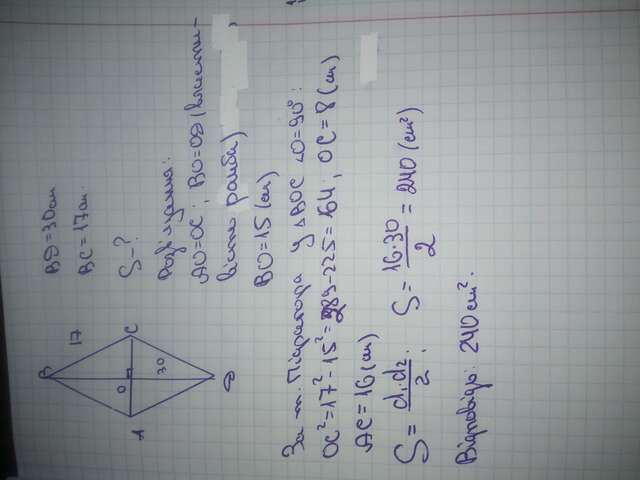 B
17
A
O
C
30
D
BD=30см
BC=17см
S-?
Розв'язання:
AO=OC; BO=OD (власти-
вість ромба)
BO=15 (см)
За т. Піфагора у △BOC ∠O=90°:
OC²=17²-15²=289-225=64; OC=8 (см)
AC=16 (см)
S = d₁·d₂ / 2 ; S = 16·30 / 2 = 240 (см²)
Відповідь: 240 см².